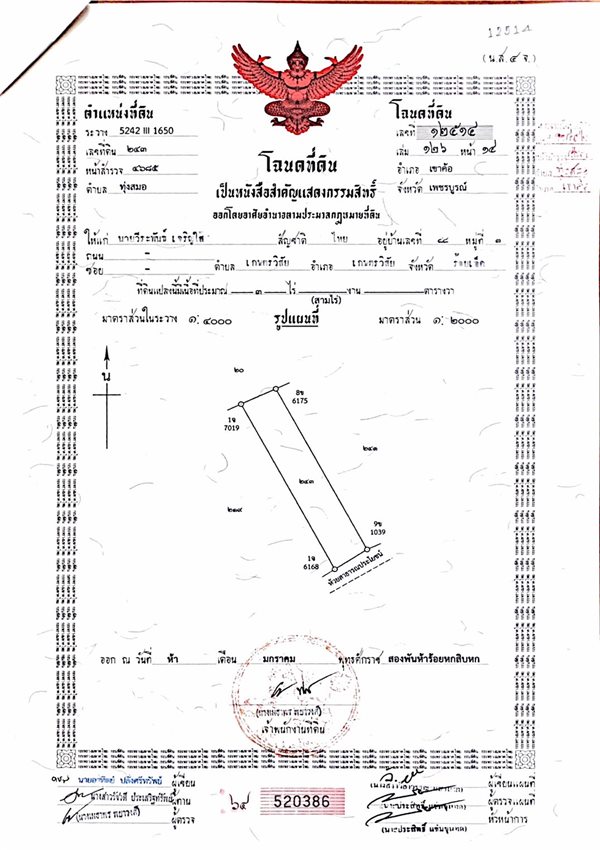 12514
(น.ส.๔ จ.)
ตำแหน่งที่ดิน
ระวาง 5242 III 1650
เลขที่ดิน ๒๔๓
หน้าสำรวจ ๔๖๘๕
ตำบล ทุ่งสมอ
โฉนดที่ดิน
เลขที่ ๑๒๕๑๔
เล่ม ๑๒๖ หน้า ๑๔
อำเภอ เขาค้อ
จังหวัด เพชรบูรณ์
โฉนดที่ดิน
เป็นหนังสือสำคัญแสดงกรรมสิทธิ์
ออกโดยอาศัยอำนาจตามประมวลกฎหมายที่ดิน
ให้แก่ นายวีระพันธ์ สัญชาติ ไทย อยู่บ้านเลขที่ ๔๔ หมู่ที่ ๓
ถนน -
ซอย - ตำบล เกษตรวิสัย อำเภอ เกษตรวิสัย จังหวัด ร้อยเอ็ด
ที่ดินแปลงนี้มีเนื้อที่ประมาณ ๓ ไร่ - งาน - ตารางวา
(สามไร่)
มาตราส่วนในระวาง ๑: ๔๐๐๐ รูปแผนที่ มาตราส่วน ๑: ๒๐๐๐
น
๒๐
8ข
6175
1จ
7019
๒๔๓
๒๑๙
9ข
1039
1จ
6168
ห้วยสาธารณประโยชน์
ออก ณ วันที่ ห้า เดือน มกราคม พุทธศักราช สองพันห้าร้อยหกสิบหก
เจ้าพนักงานที่ดิน
ผู้เขียน
ผู้ทาน
ผู้ตรวจ
520386
ผู้เขียนแผนที่
ผู้ตรวจแผนที่
หัวหน้าการ
(นายประสิทธิ์ แข่นขุนทด)